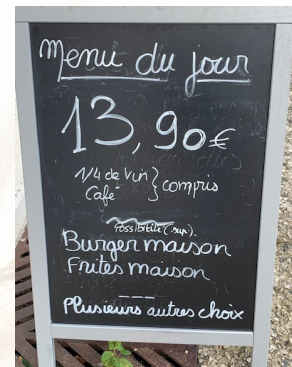 Menu du jour
13,90€
1/4 de vin } compris
Café
Possibilité (sup).
Burger maison
Frites maison
Plusieurs autres choix